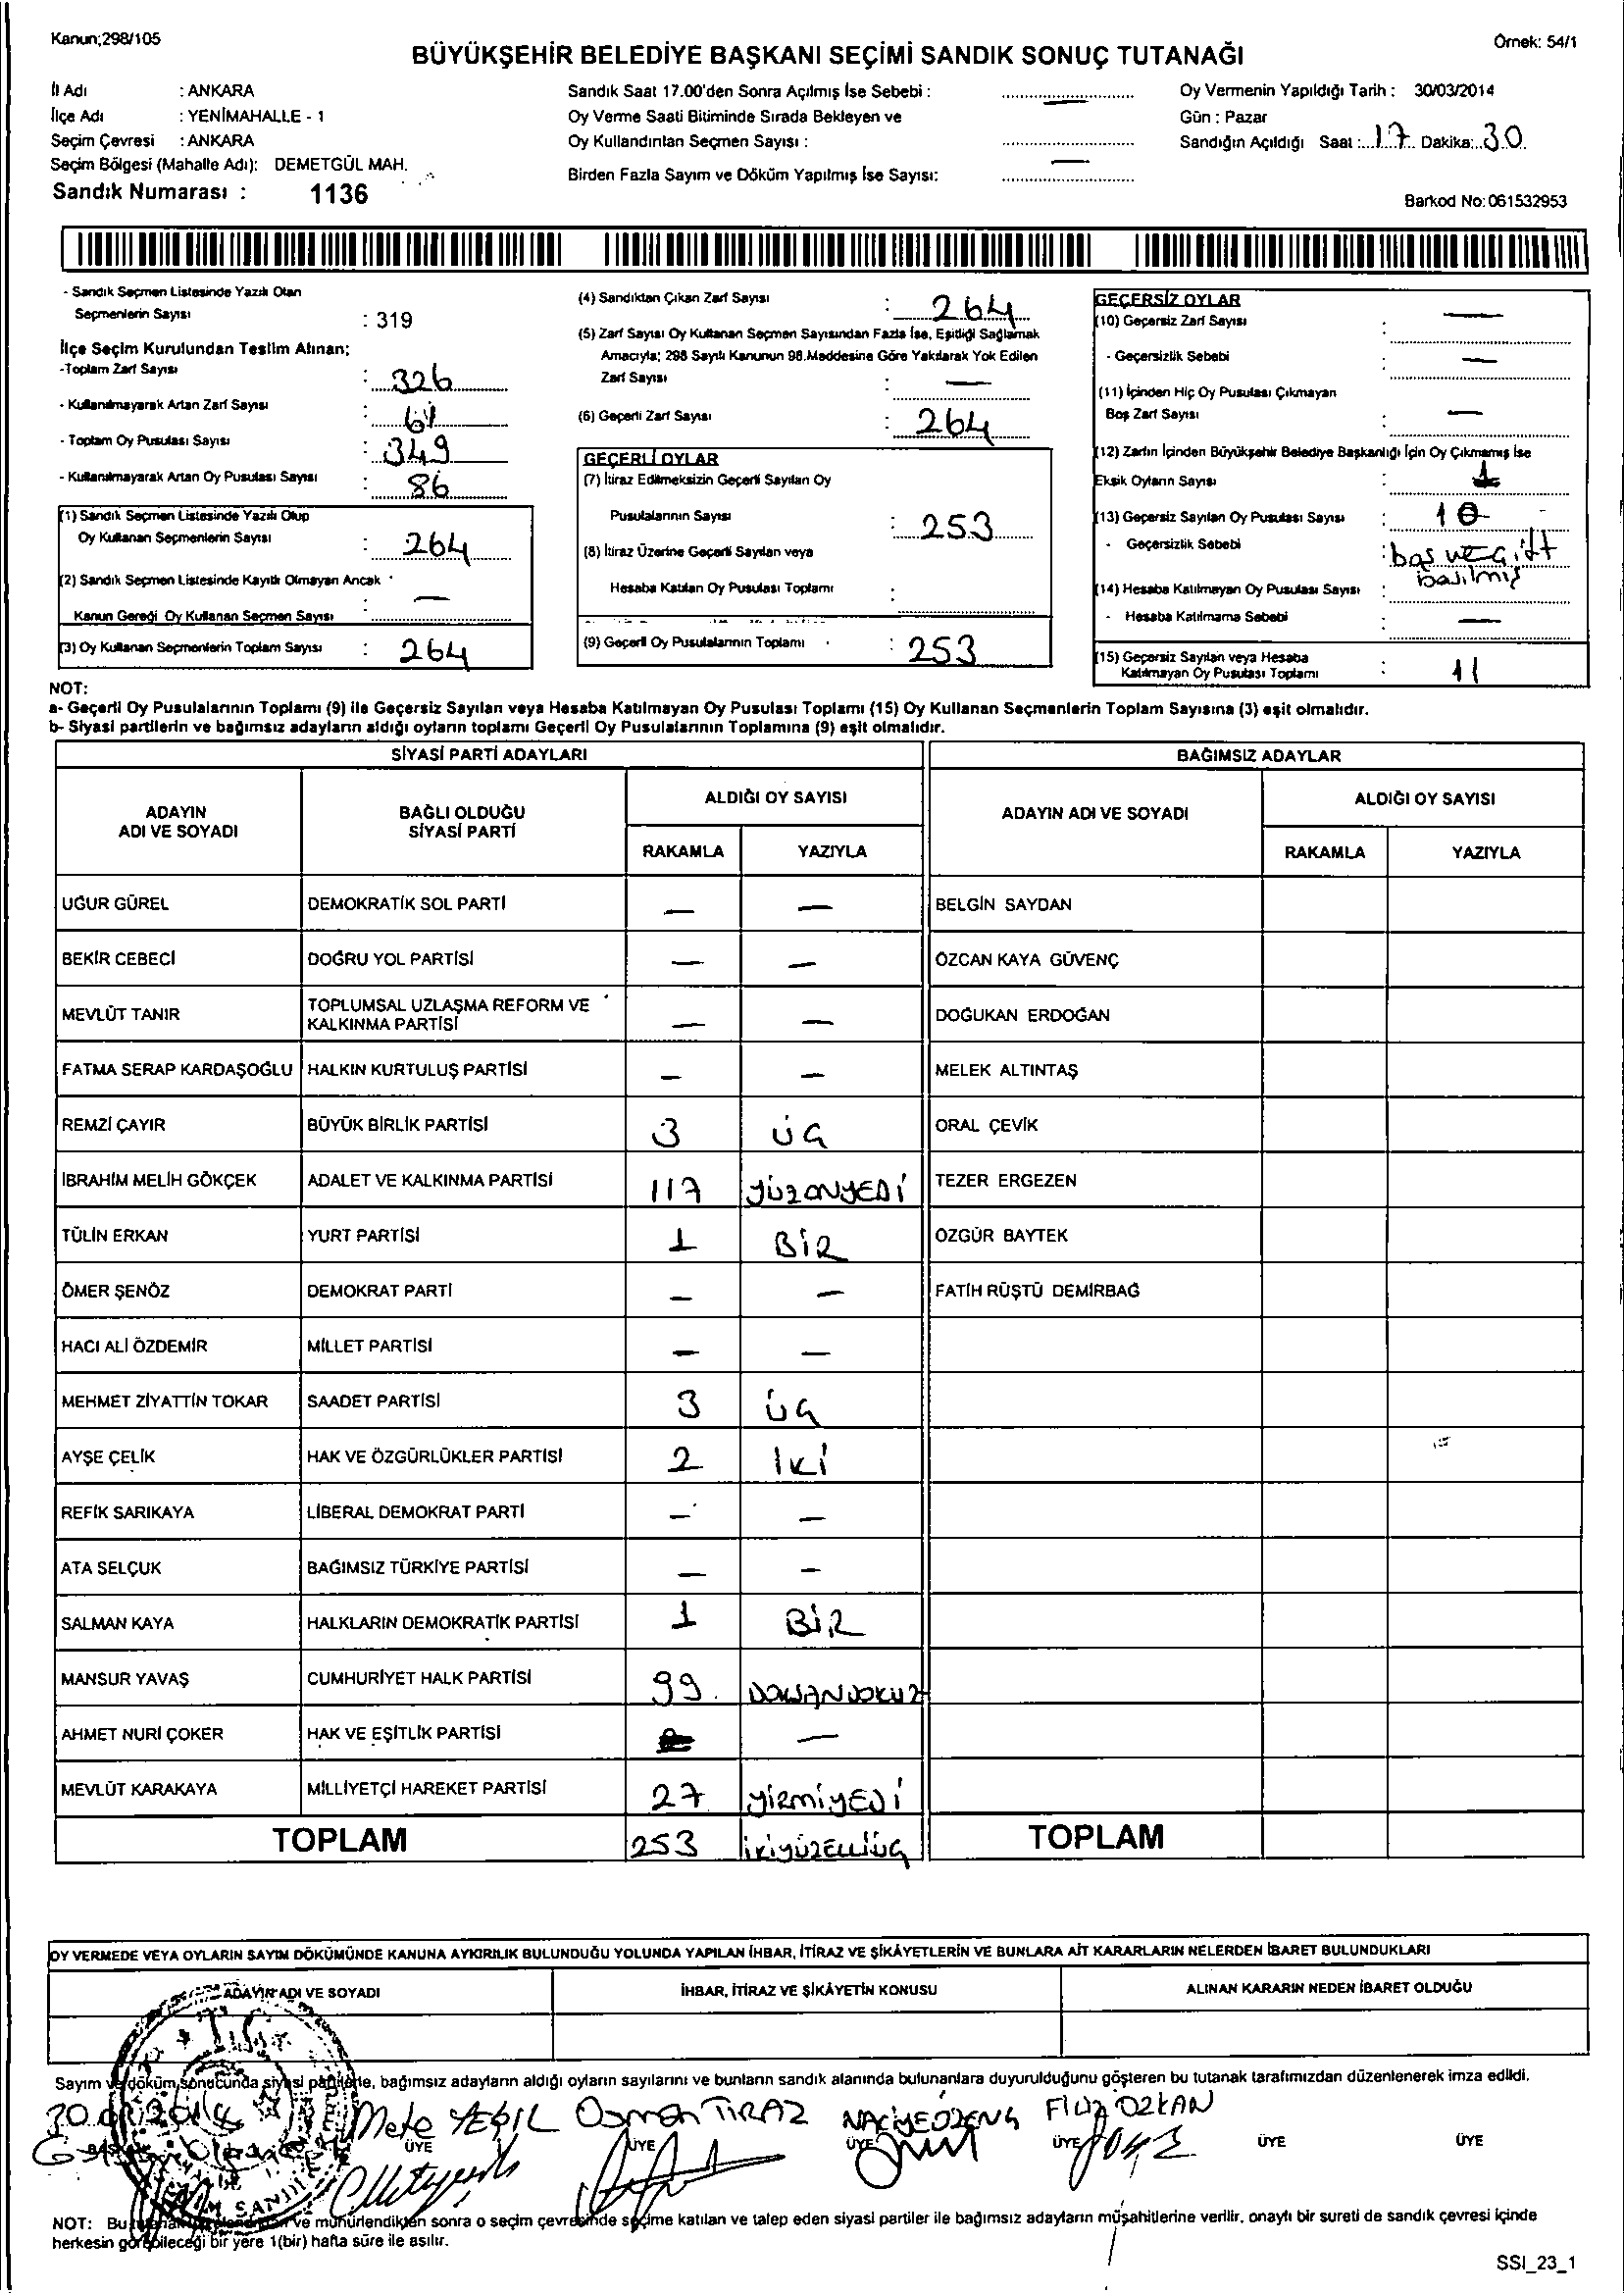 Kanun;298/105
Örnek: 54/1
BÜYÜKŞEHİR BELEDİYE BAŞKANI SEÇİMİ SANDIK SONUÇ TUTANAĞI
İl Adı : ANKARA
İlçe Adı : YENİMAHALLE - 1
Seçim Çevresi : ANKARA
Seçim Bölgesi (Mahalle Adı): DEMETGÜL MAH.
Sandık Numarası : 1136
Sandık Saat 17.00'den Sonra Açılmış İse Sebebi : —
Oy Verme Saati Bitiminde Sırada Bekleyen ve
Oy Kullandırılan Seçmen Sayısı :
Birden Fazla Sayım ve Döküm Yapılmış İse Sayısı: —
Oy Vermenin Yapıldığı Tarih : 30/03/2014
Gün : Pazar
Sandığın Açıldığı Saat : 17 Dakika: 30
Barkod No: 061532953
- Sandık Seçmen Listesinde Yazılı Olan
Seçmenlerin Sayısı : 319
İlçe Seçim Kurulundan Teslim Alınan;
-Toplam Zarf Sayısı : 326
- Kullanılmayarak Artan Zarf Sayısı :
- Toplam Oy Pusulası Sayısı : 349
- Kullanılmayarak Artan Oy Pusulası Sayısı : 86
(1) Sandık Seçmen Listesinde Yazılı Olup
Oy Kullanan Seçmenlerin Sayısı : 264
(2) Sandık Seçmen Listesinde Kayıtlı Olmayan Ancak
Kanun Gereği Oy Kullanan Seçmen Sayısı : —
(3) Oy Kullanan Seçmenlerin Toplam Sayısı : 264
(4) Sandıktan Çıkan Zarf Sayısı : 264
(5) Zarf Sayısı Oy Kullanan Seçmen Sayısından Fazla İse, Eşitliği Sağlamak
Amacıyla; 298 Sayılı Kanunun 98.Maddesine Göre Yakılarak Yok Edilen
Zarf Sayısı : —
(6) Geçerli Zarf Sayısı : 264
GEÇERLİ OYLAR
(7) İtiraz Edilmeksizin Geçerli Sayılan Oy
Pusulalarının Sayısı : 253
(8) İtiraz Üzerine Geçerli Sayılan veya
Hesaba Katılan Oy Pusulası Toplamı :
(9) Geçerli Oy Pusulalarının Toplamı : 253
GEÇERSİZ OYLAR
(10) Geçersiz Zarf Sayısı : —
- Geçersizlik Sebebi : —
(11) İçinden Hiç Oy Pusulası Çıkmayan
Boş Zarf Sayısı : —
(12) Zarfın İçinden Büyükşehir Belediye Başkanlığı İçin Oy Çıkmamış İse
Eksik Oyların Sayısı : 1
(13) Geçersiz Sayılan Oy Pusulası Sayısı : 10
- Geçersizlik Sebebi : boş ve çift
basılmış
(14) Hesaba Katılmayan Oy Pusulası Sayısı :
- Hesaba Katılmama Sebebi : —
(15) Geçersiz Sayılan veya Hesaba
Katılmayan Oy Pusulası Toplamı : 11
NOT:
a- Geçerli Oy Pusulalarının Toplamı (9) ile Geçersiz Sayılan veya Hesaba Katılmayan Oy Pusulası Toplamı (15) Oy Kullanan Seçmenlerin Toplam Sayısına (3) eşit olmalıdır.
b- Siyasi partilerin ve bağımsız adayların aldığı oyların toplamı Geçerli Oy Pusulalarının Toplamına (9) eşit olmalıdır.
SİYASİ PARTİ ADAYLARI
BAĞIMSIZ ADAYLAR
ADAYIN
ADI VE SOYADI
BAĞLI OLDUĞU
SİYASİ PARTİ
ALDIĞI OY SAYISI
RAKAMLA YAZIYLA
ADAYIN ADI VE SOYADI
ALDIĞI OY SAYISI
RAKAMLA YAZIYLA
UĞUR GÜREL DEMOKRATİK SOL PARTİ — — BELGİN SAYDAN
BEKİR CEBECİ DOĞRU YOL PARTİSİ — — ÖZCAN KAYA GÜVENÇ
MEVLÜT TANIR TOPLUMSAL UZLAŞMA REFORM VE
KALKINMA PARTİSİ — — DOĞUKAN ERDOĞAN
FATMA SERAP KARDAŞOĞLU HALKIN KURTULUŞ PARTİSİ — — MELEK ALTINTAŞ
REMZİ ÇAYIR BÜYÜK BİRLİK PARTİSİ 3 ÜÇ ORAL ÇEVİK
İBRAHİM MELİH GÖKÇEK ADALET VE KALKINMA PARTİSİ 117 YÜZONYEDİ TEZER ERGEZEN
TÜLİN ERKAN YURT PARTİSİ 1 BİR ÖZGÜR BAYTEK
ÖMER ŞENÖZ DEMOKRAT PARTİ — — FATİH RÜŞTÜ DEMİRBAĞ
HACI ALİ ÖZDEMİR MİLLET PARTİSİ — —
MEHMET ZİYATTİN TOKAR SAADET PARTİSİ 3 ÜÇ
AYŞE ÇELİK HAK VE ÖZGÜRLÜKLER PARTİSİ 2 İKİ
REFİK SARIKAYA LİBERAL DEMOKRAT PARTİ — —
ATA SELÇUK BAĞIMSIZ TÜRKİYE PARTİSİ — —
SALMAN KAYA HALKLARIN DEMOKRATİK PARTİSİ 1 BİR
MANSUR YAVAŞ CUMHURİYET HALK PARTİSİ 99 DOKSANDOKUZ
AHMET NURİ ÇOKER HAK VE EŞİTLİK PARTİSİ —
MEVLÜT KARAKAYA MİLLİYETÇİ HAREKET PARTİSİ 27 YİRMİYEDİ
TOPLAM 253 İKİYÜZELLİÜÇ TOPLAM
OY VERMEDE VEYA OYLARIN SAYIM DÖKÜMÜNDE KANUNA AYKIRILIK BULUNDUĞU YOLUNDA YAPILAN İHBAR, İTİRAZ VE ŞİKÂYETLERİN VE BUNLARA AİT KARARLARIN NELERDEN İBARET BULUNDUKLARI
ADAYIN ADI VE SOYADI İHBAR, İTİRAZ VE ŞİKÂYETİN KONUSU ALINAN KARARIN NEDEN İBARET OLDUĞU
Sayım ve döküm sonucunda siyasi partilerle, bağımsız adayların aldığı oyların sayılarını ve bunların sandık alanında bulunanlara duyurulduğunu gösteren bu tutanak tarafımızdan düzenlenerek imza edildi.
Mete YEŞİL Osman TİRAZ NACİYE ÖZENÇ FİLİZ ÖZKAN
BAŞKAN ÜYE ÜYE ÜYE ÜYE ÜYE ÜYE
NOT: Bu tutanak düzenlendikten ve mühürlendikten sonra o seçim çevresinde seçime katılan ve talep eden siyasi partiler ile bağımsız adayların müşahitlerine verilir, onaylı bir sureti de sandık çevresi içinde
herkesin görebileceği bir yere 1(bir) hafta süre ile asılır.
SSI_23_1